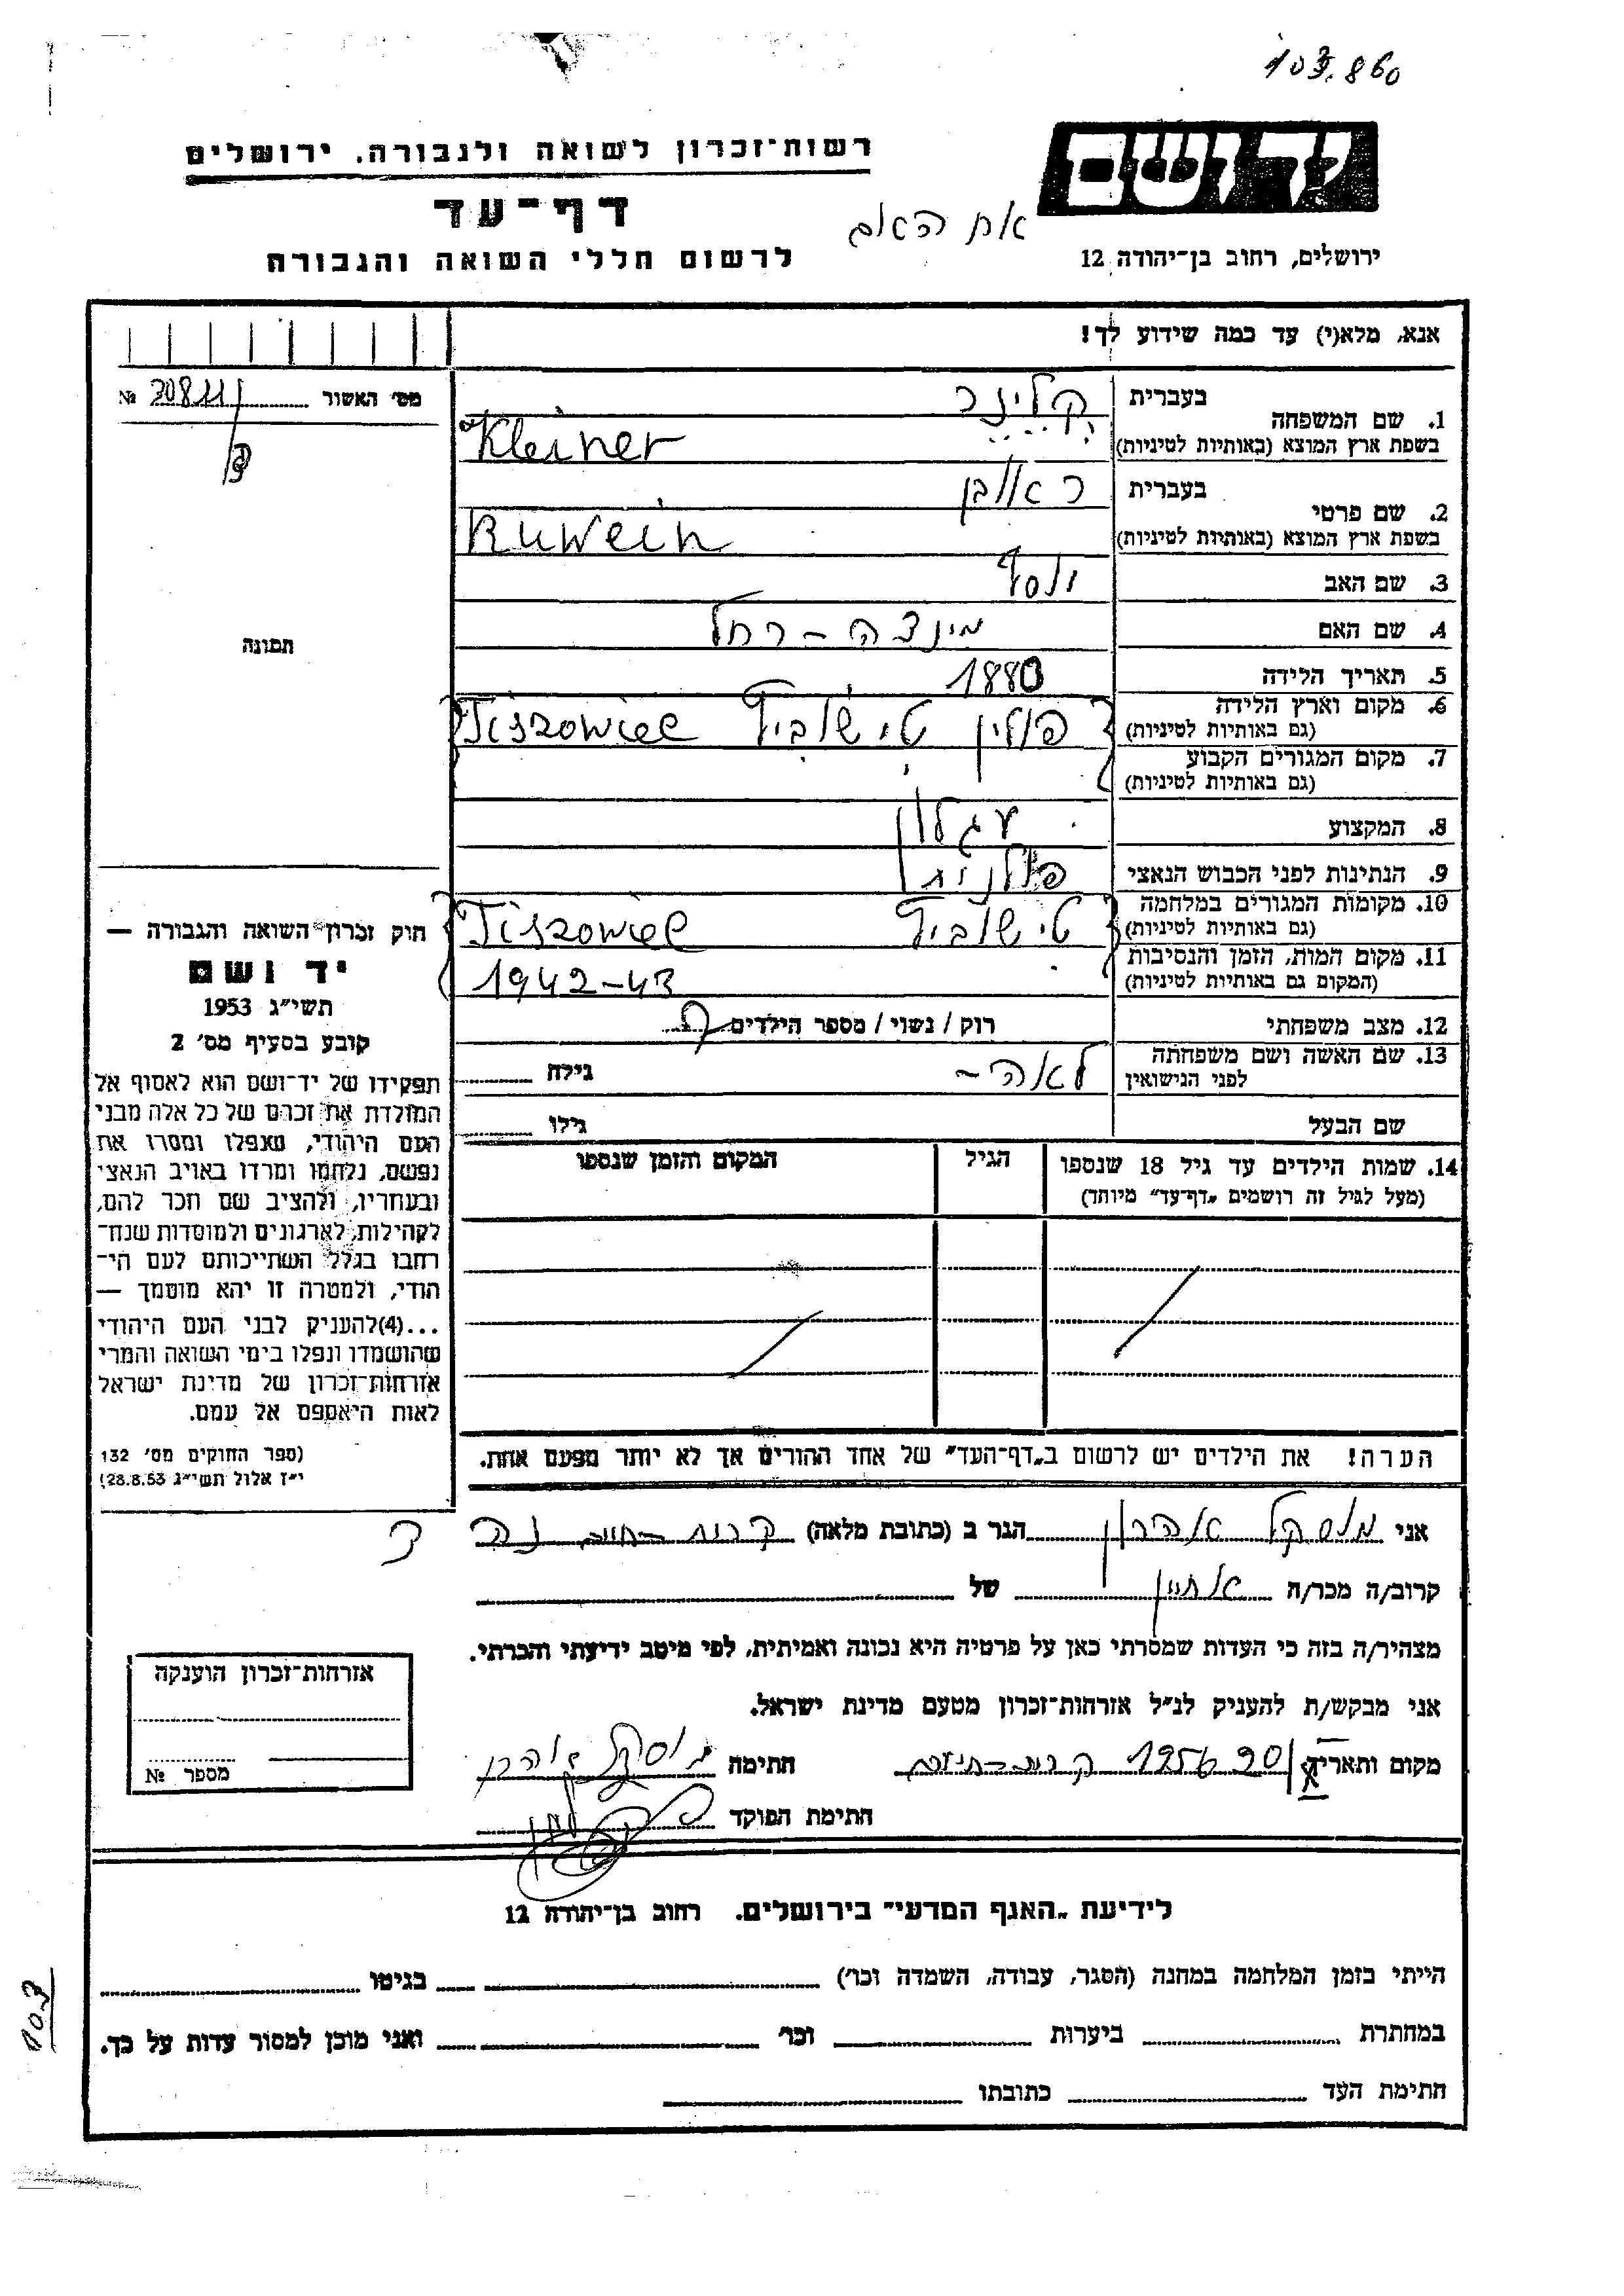 103.860
יד ושם
רשות־זכרון לשואה ולגבורה, ירושלים
דף־עד
את האב
לרשום חללי השואה והגבורה
ירושלים, רחוב בן־יהודה 12
אנא, מלא(י) עד כמה שידוע לך!
מס' האשור № 30811
1. שם המשפחה
בעברית קלינר
בשפת ארץ המוצא (באותיות לטיניות) Kleiner
2. שם פרטי
בעברית ראובן
בשפת ארץ המוצא (באותיות לטיניות) Ruwein
3. שם האב יוסף
4. שם האם מינצה - רחל
תמונה
5. תאריך הלידה 1880
6. מקום וארץ הלידה פולין טישוביץ Tiszowiec
(גם באותיות לטיניות)
7. מקום המגורים הקבוע
(גם באותיות לטיניות)
8. המקצוע עגלון
9. הנתינות לפני הכבוש הנאצי פולנית
10. מקומות המגורים במלחמה טישוביץ Tiszowiec
(גם באותיות לטיניות)
11. מקום המות, הזמן והנסיבות
(המקום גם באותיות לטיניות) 1942-43
12. מצב משפחתי רוק / נשוי / מספר הילדים
13. שם האשה ושם משפחתה לאה - גילה
לפני הנישואין
שם הבעל גילו
14. שמות הילדים עד גיל 18 שנספו הגיל המקום והזמן שנספו
(מעל לגיל זה רושמים „דף־עד" מיוחד)
הערה! את הילדים יש לרשום ב„דף־העד" של אחד ההורים אך לא יותר מפעם אחת.
חוק זכרון השואה והגבורה —
יד ושם
תשי"ג 1953
קובע בסעיף מס' 2
תפקידו של יד־ושם הוא לאסוף אל
המולדת את זכרם של כל אלה מבני
העם היהודי, שנפלו ומסרו את
נפשם, נלחמו ומרדו באויב הנאצי
ובעוזריו, ולהציב שם וזכר להם,
לקהילות, לארגונים ולמוסדות שנח־
רבו בגלל השתייכותם לעם הי־
הודי, ולמטרה זו יהא מוסמך —
...(4) להעניק לבני העם היהודי
שהושמדו ונפלו בימי השואה והמרי
אזרחות־זכרון של מדינת ישראל
לאות היאספם אל עמם.
(ספר החוקים מס' 132
י"ז אלול תשי"ג 28.8.53)
אני מוסקל אהרון הגר ב (כתובת מלאה) קרית-חיים
קרוב/ה מכר/ה אחיין של
מצהיר/ה בזה כי העדות שמסרתי כאן על פרטיה היא נכונה ואמיתית, לפי מיטב ידיעתי והכרתי.
אני מבקש/ת להעניק לנ"ל אזרחות־זכרון מטעם מדינת ישראל.
מקום ותאריך קרית-חיים 1956 חתימה מוסקל אהרון
חתימת הפוקד
אזרחות־זכרון הוענקה
מספר №
לידיעת „האגף המדעי" בירושלים. רחוב בן־יהודה 12
הייתי בזמן המלחמה במחנה (הסגר, עבודה, השמדה וכו') בגיטו
במחתרת ביערות וכו' ואני מוכן למסור עדות על כך.
חתימת העד כתובתו
103